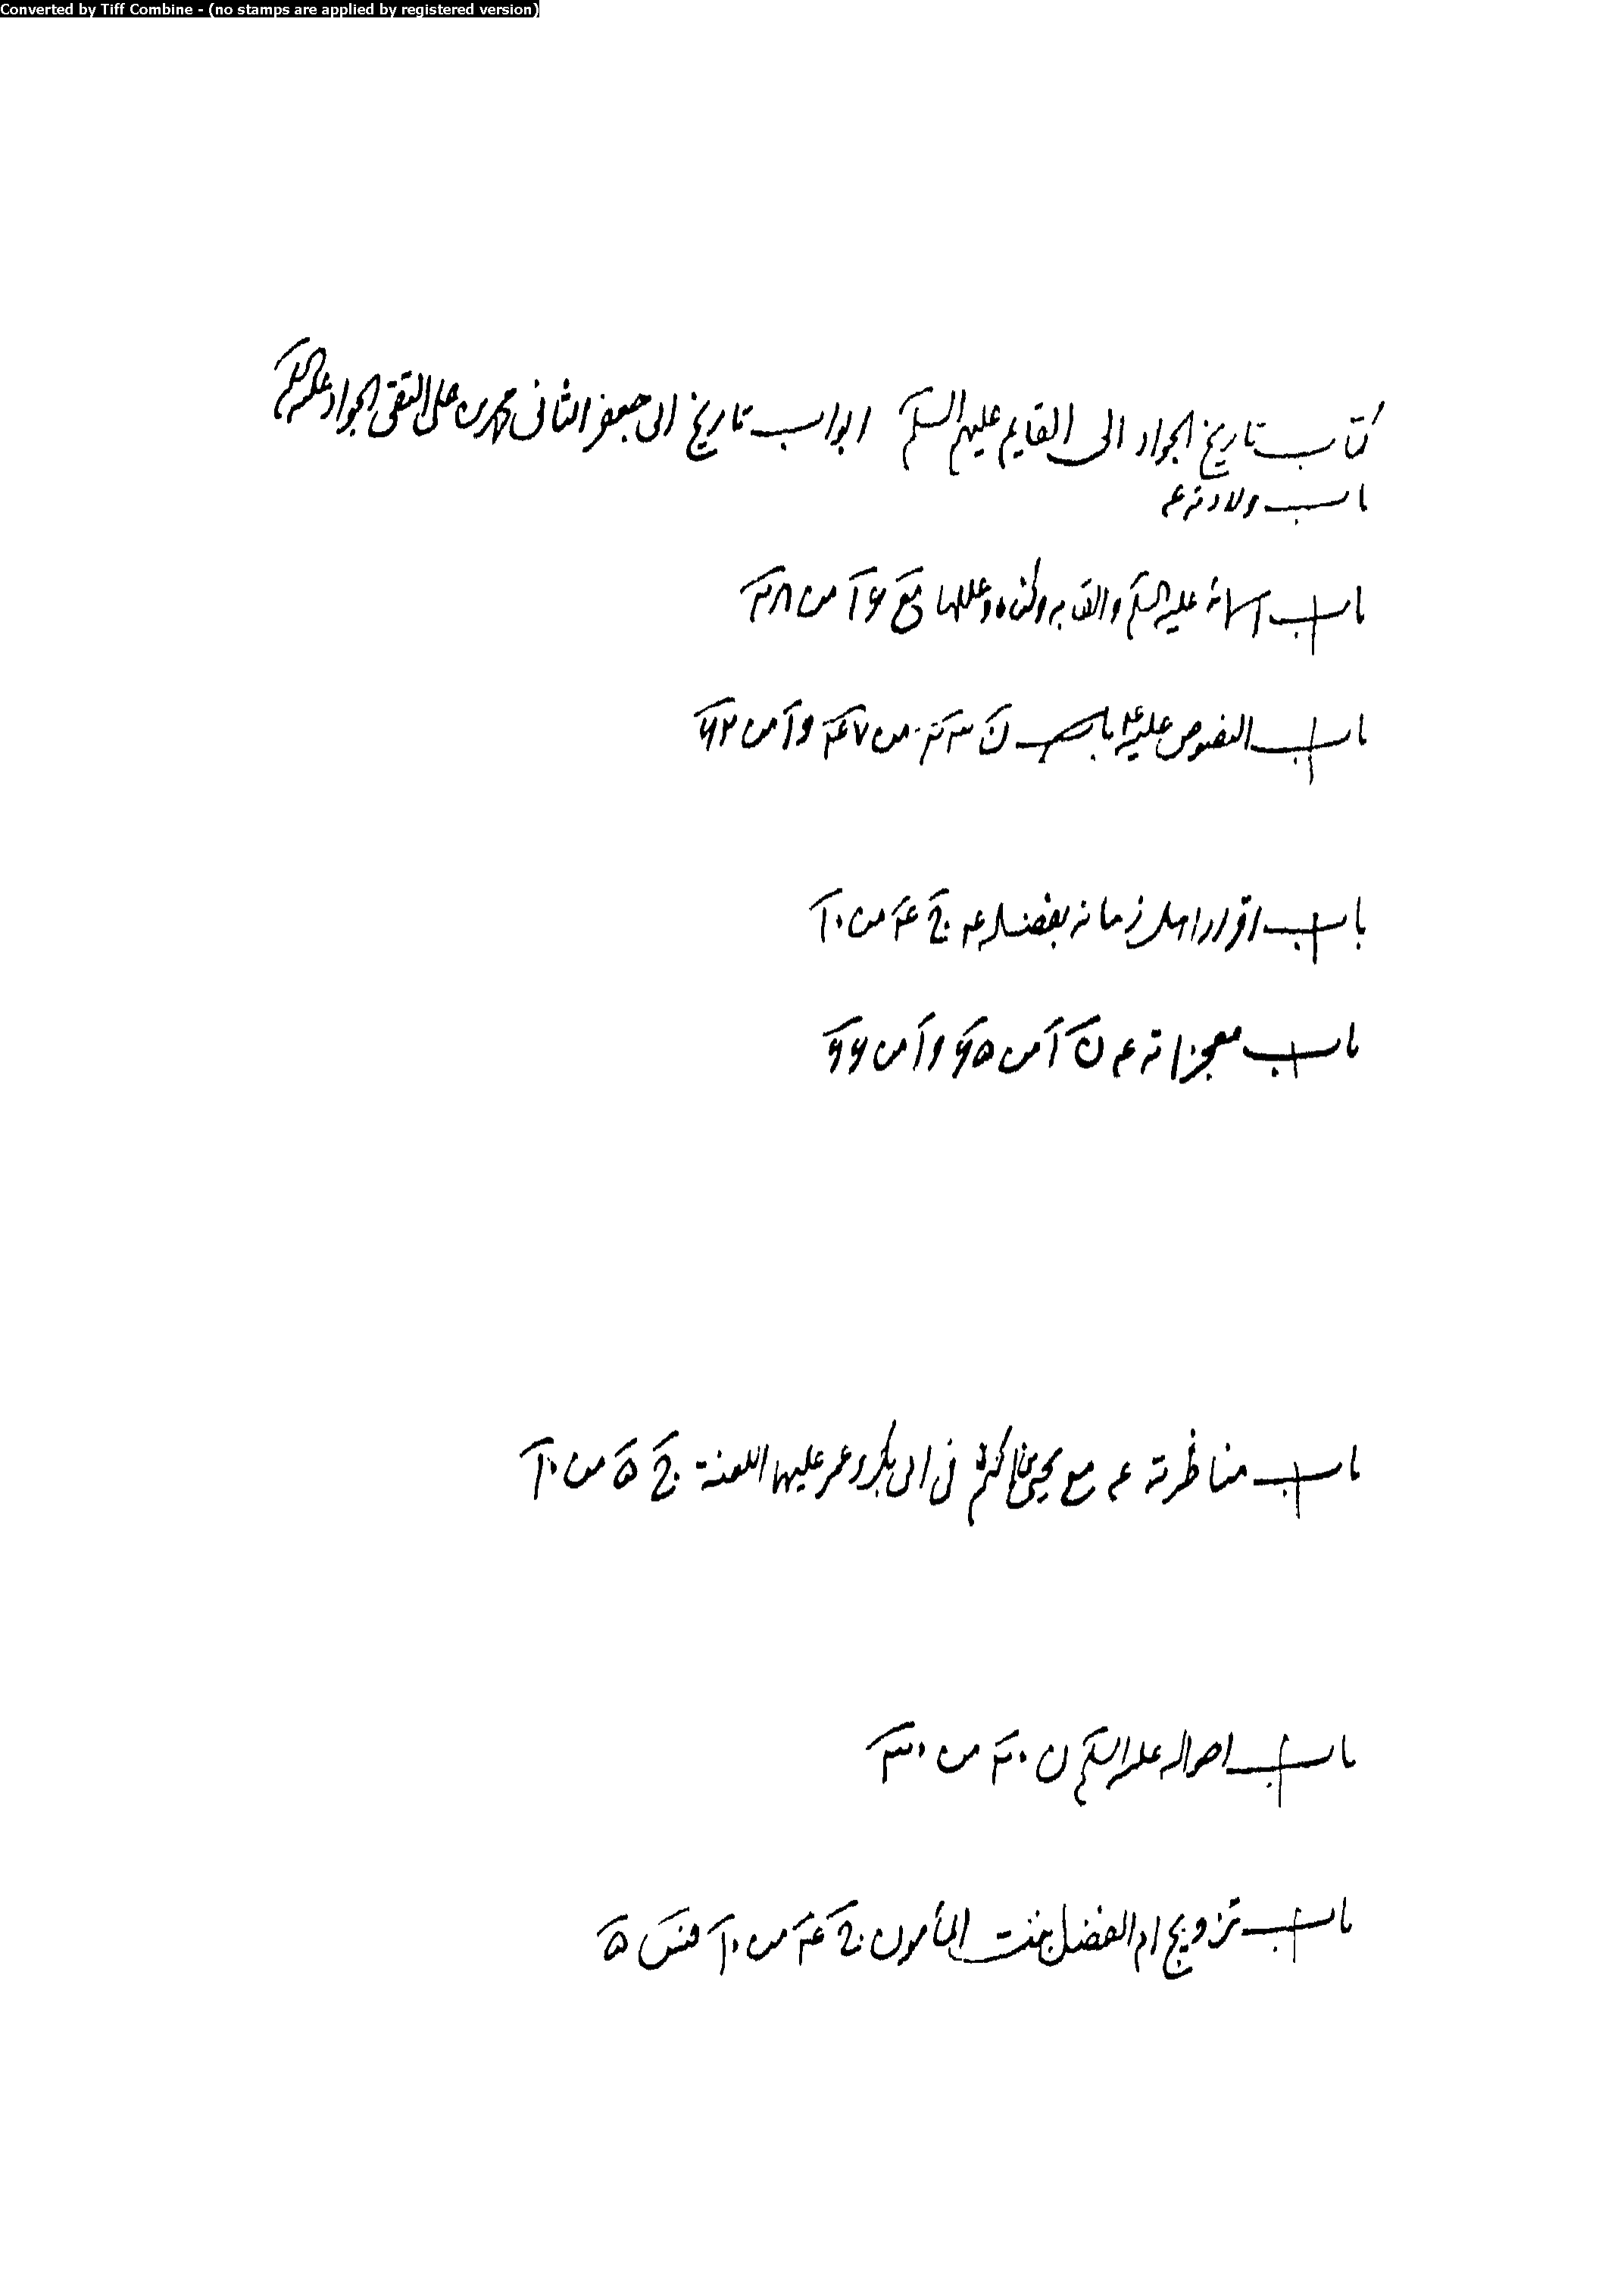 Converted by Tiff Combine - (no stamps are applied by registered version)
كتاب تاريخ الجواد الى القايم عليهم السلم ابواب تاريخ ابى جعفر الثانى محمد بن على التقى الجواد عليه السلم
باب ولادته ع
باب اسمائه عليه السلم والقابه وكناه وعللها مع ۶ ا من ۳۸
باب النصوص عليه ع ن من ۴۷ و ا من ۶۲
باب اقرار اهل زمانه بفضله ع ج ۴ من ۱۰
باب معجزاته ع ن ا من ۶۵ و ا من ۶۶
باب مناظرته ع مع يحيى بن اكثم فى ابى بكر وعمر عليهما اللعنة ج ۵ من ۱۰
باب احواله عليه السلم ن ۲۰ من ۳۰
باب تزويج ام الفضل بنت المأمون ج ۴ من ۱۰ ۵